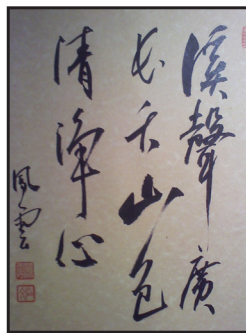 溪聲廣
長舌山色
清淨心
風雲